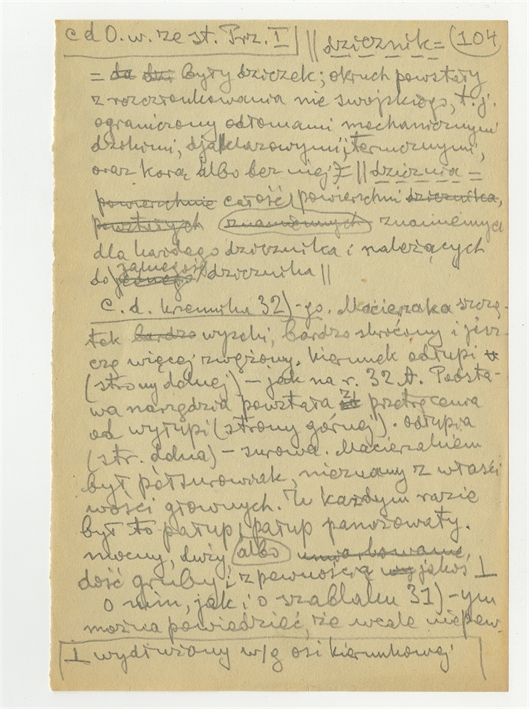 c d O. w. ze st. Prz. I || dzicznik = (104
= da dzi były dziczek; okruch powstały
z rozczłonkowania nie swojskiego, t. j.
ograniczony odłomami mechanicznymi
dzikimi, djaklazowymi, termicznymi,
oraz korą albo bez niej || dzicznia =
powierzchnie całość powierzchni dzicznika,
powstałych znamiennych znamiennych
dla każdego dzicznika i należących
do jednego dzicznika ||
C. d. krzemika 32)-go. Macierzaka szczą-
tek bardzo wypchi, bardzo skrócony i jesz-
czę więcej zwężony. Kierunek odłupi
(strony dolnej) – jak na r. 32 A. Podsta-
wa narzędzia powstała z przetrącenia
od wyłupi (strony górnej). Odłupia
(str. dolna) – surowa. Macierzakiem
był półsurowiak, nieznany z właści
wości głównych. W każdym razie
był to płatup, płatup panożowaty.
mocny, duży, albo
dość gruby i z pewnością jakoś ⊥
O nim, jak i o wzablaku 31)-ym
można powiedzieć, że wcale niepew-
⊥ wydłużony w/g osi kierunkowej